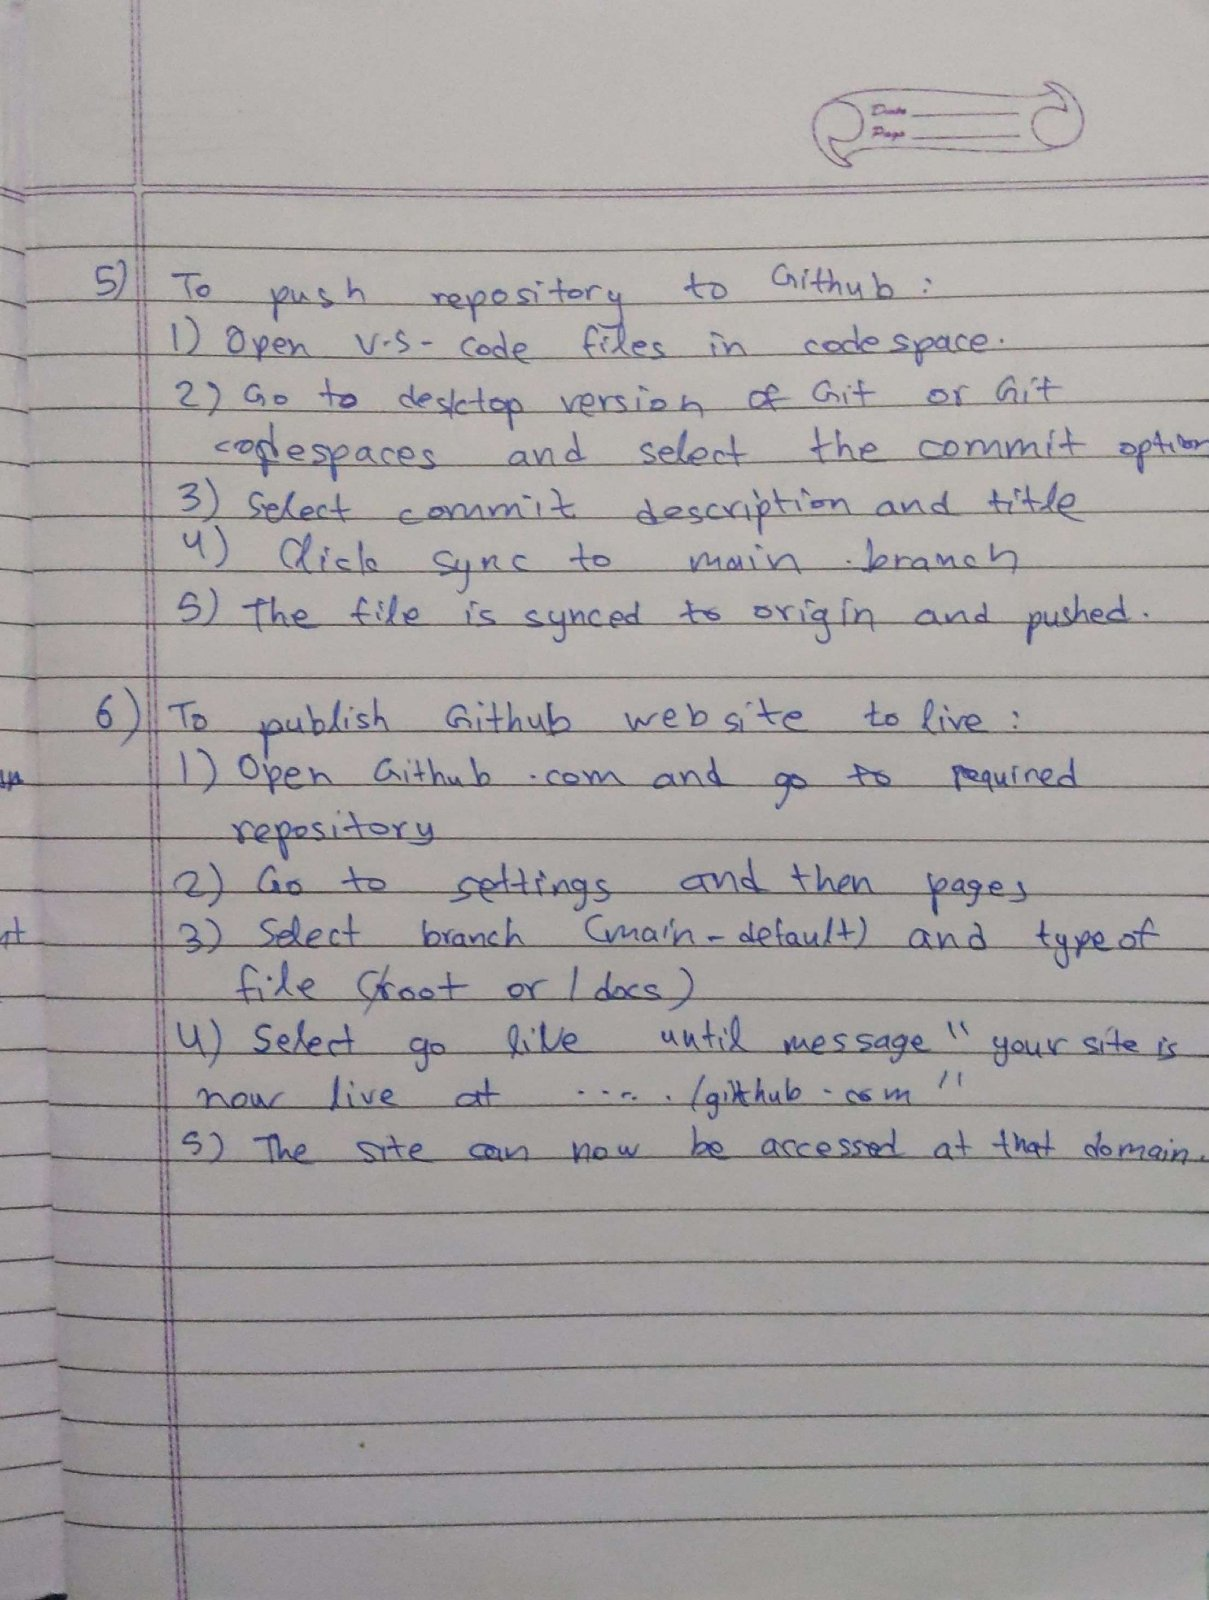 Date
Page
5) To push repository to Github :
1) Open V-S- code files in codespace.
2) Go to desktop version of Git or Git
codespaces and select the commit option
3) Select commit description and title
4) Click sync to main branch
5) The file is synced to origin and pushed.
6) To publish Github website to live :
1) Open Github .com and go to required
repository
2) Go to settings and then pages
3) Select branch (main - default) and type of
file (root or / docs)
4) Select go live until message " your site is
now live at ..... /github.com "
5) The site can now be accessed at that domain.